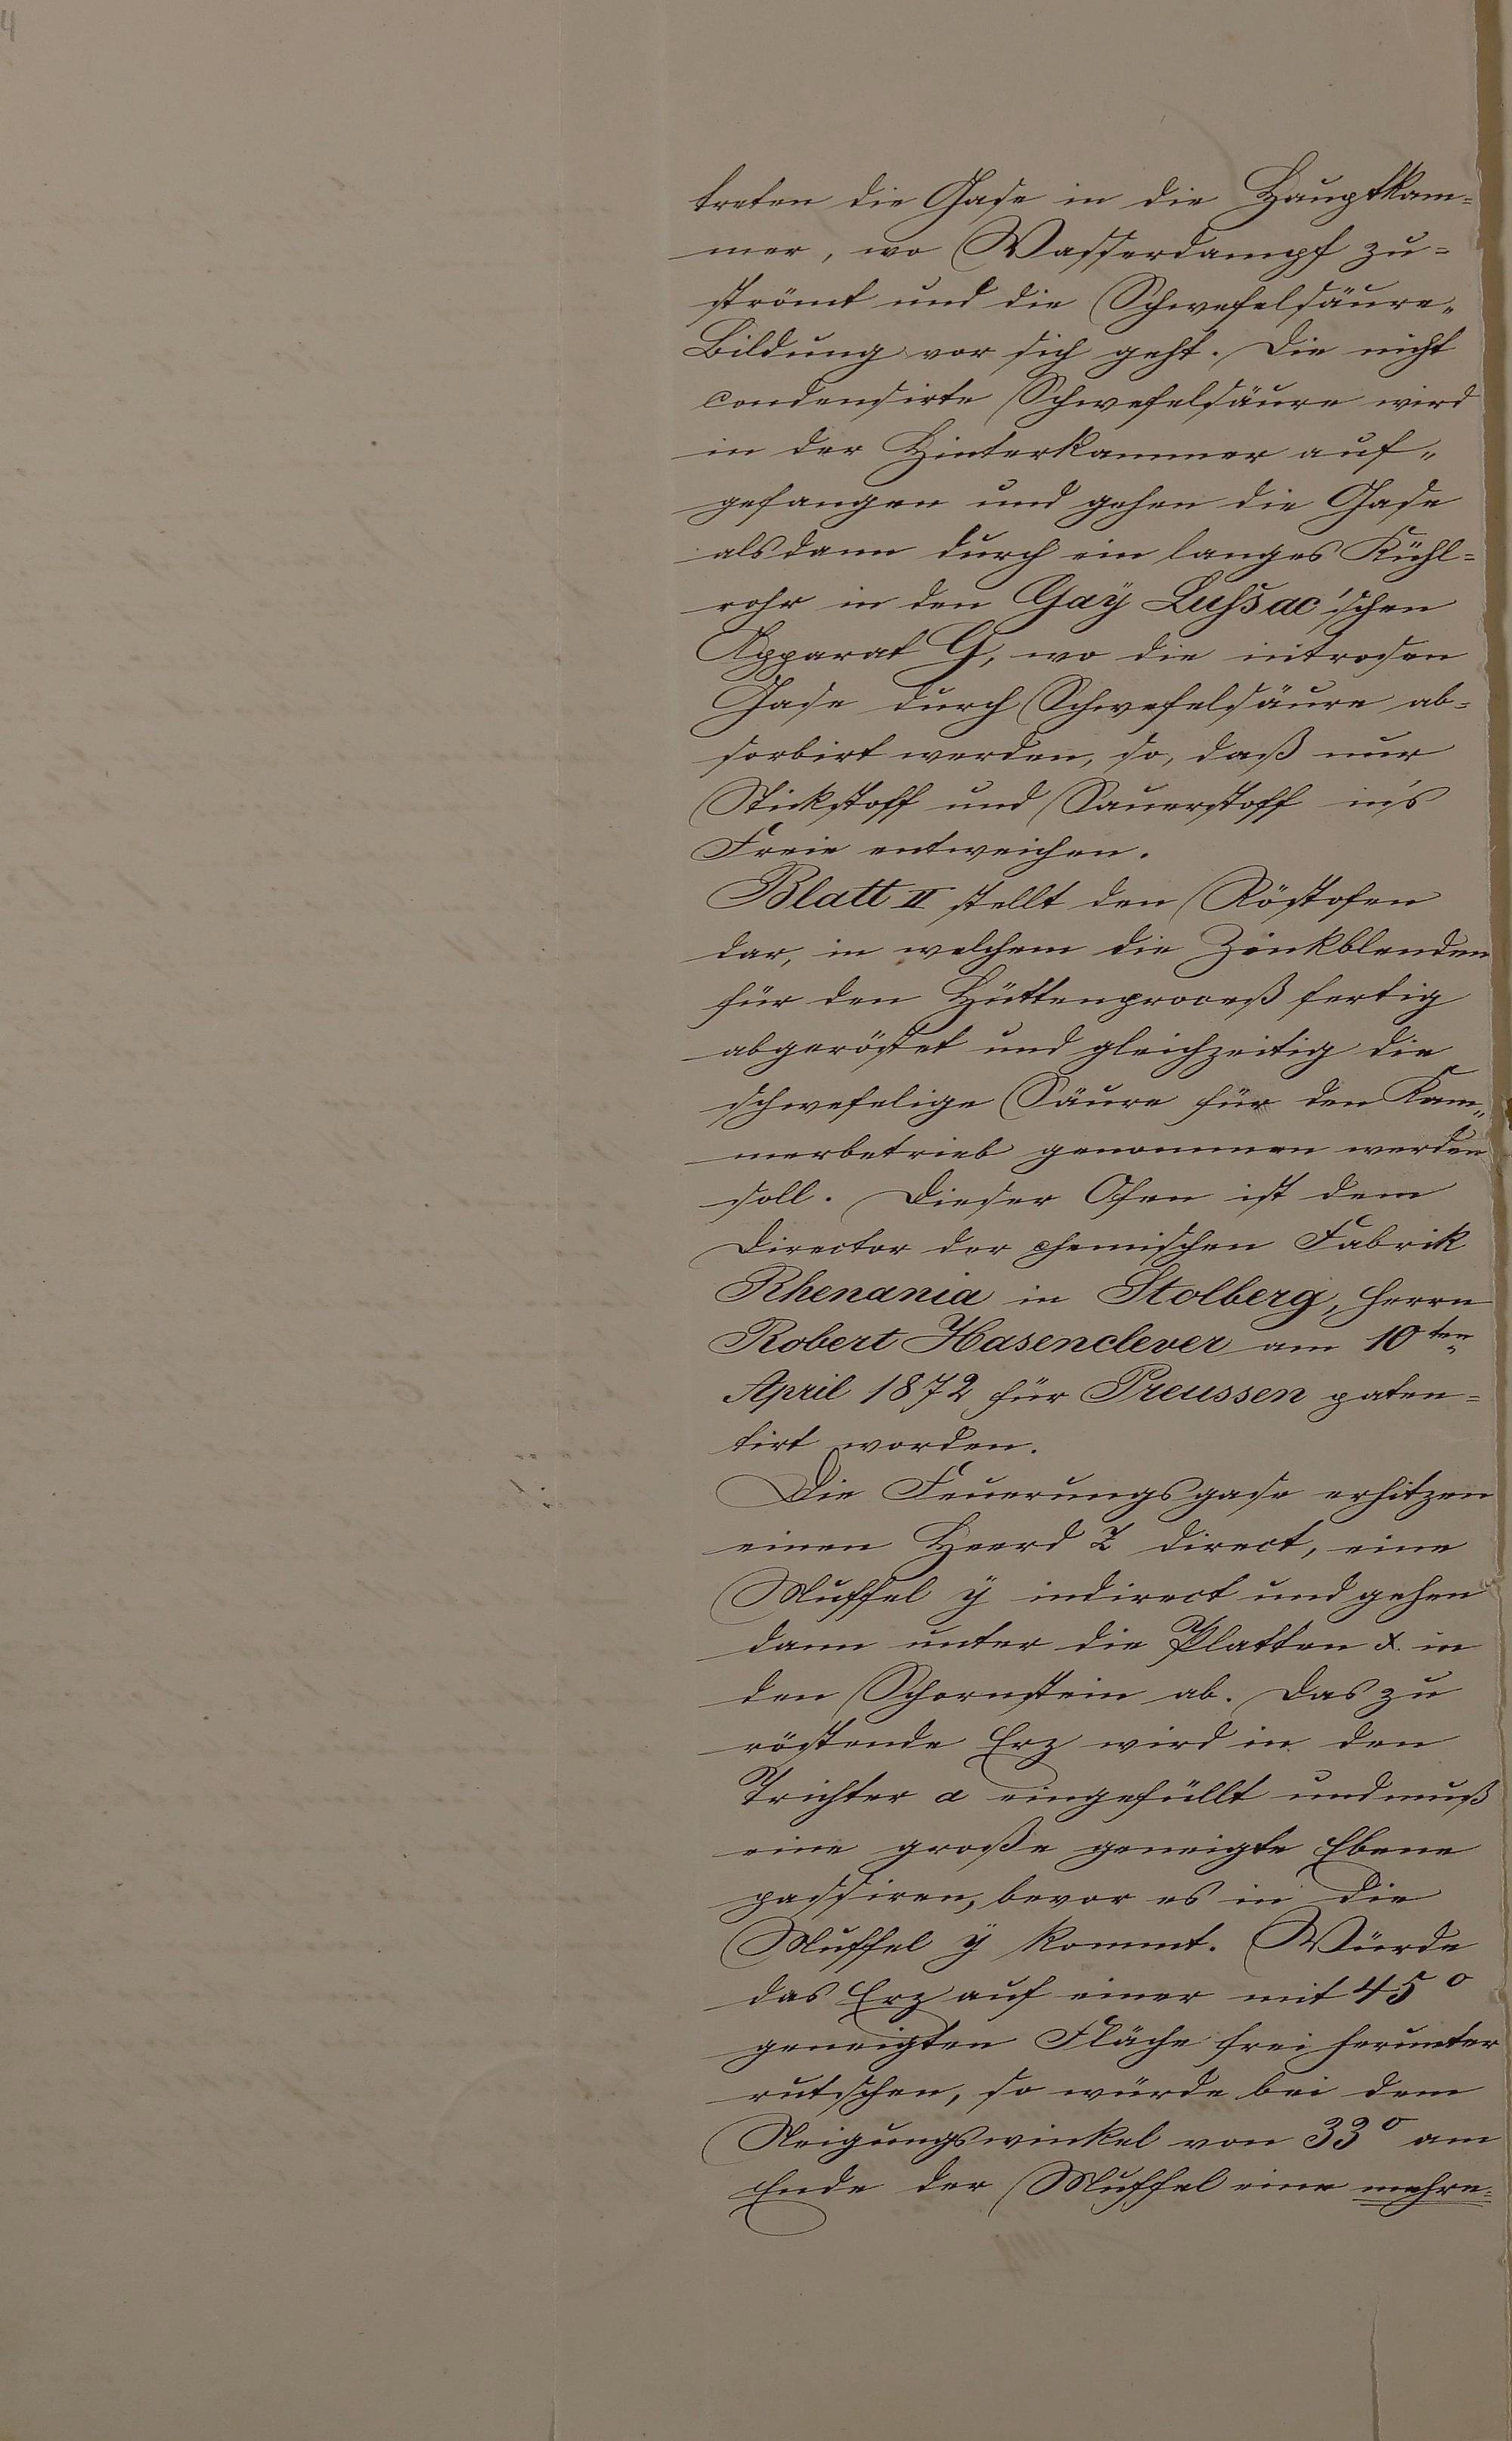 4
treten die Gase in die Hauptkam=
mer, wo Wasserdampf zu=
strömt und die Schwefelsäure„
Bildung vor sich geht. Die nicht
condensirte Schwefelsäure wird
in der Hinterkammer auf„
gefangen und gehen die Gase
alsdann durch ein langes Kühl=
rohr in den Gaÿ Lussac'schen
Apparat G, wo die nitrosen
Gase durch Schwefelsäure ab=
sorbirt werden, so, daß nur
Stickstoff und Sauerstoff in's
Freie entweichen.
Blatt II stellt den Röstofen
dar, in welchem die Zinkblenden
für den Hüttenproceß fertig
abgeröstet und gleichzeitig die
schwefelige Säure für den Kam„
merbetrieb genommen werden
soll. Dieser Ofen ist dem
Director der chemischen Fabrik
Rhenania in Stolberg, Herrn
Robert Hasenclever am 10ten
April 1872 für Preussen paten=
tirt worden.
Die Feuerungsgase erhitzen
einen Heerd Z direct, eine
Muffel ÿ indirect und gehen
dann unter die Platten x in
den Schornstein ab. Das zu
röstende Erz wird in den
Trichter a eingefüllt und muß
eine große geneigte Ebene
passiren, bevor es in die
Muffel ÿ kommt. Würde
das Erz auf einer mit 45°
geneigten Fläche frei herunter
rutschen, so würde bei dem
Neigungswinkel von 33° am
Ende der Muffel eine mehre=